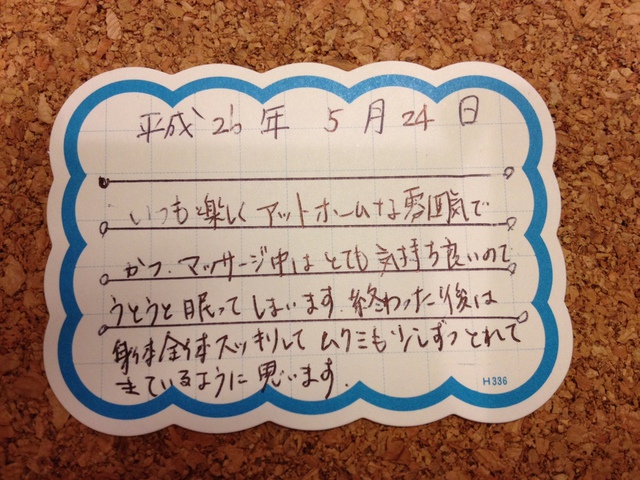 平成26年 5月24日
いつも楽しくアットホームな雰囲気で
かつ、マッサージ中はとても気持ち良いので
うとうと眠ってしまいます。終わった後は
身体全体スッキリして ムクミも少しずつとれて
きているように思います。
H336